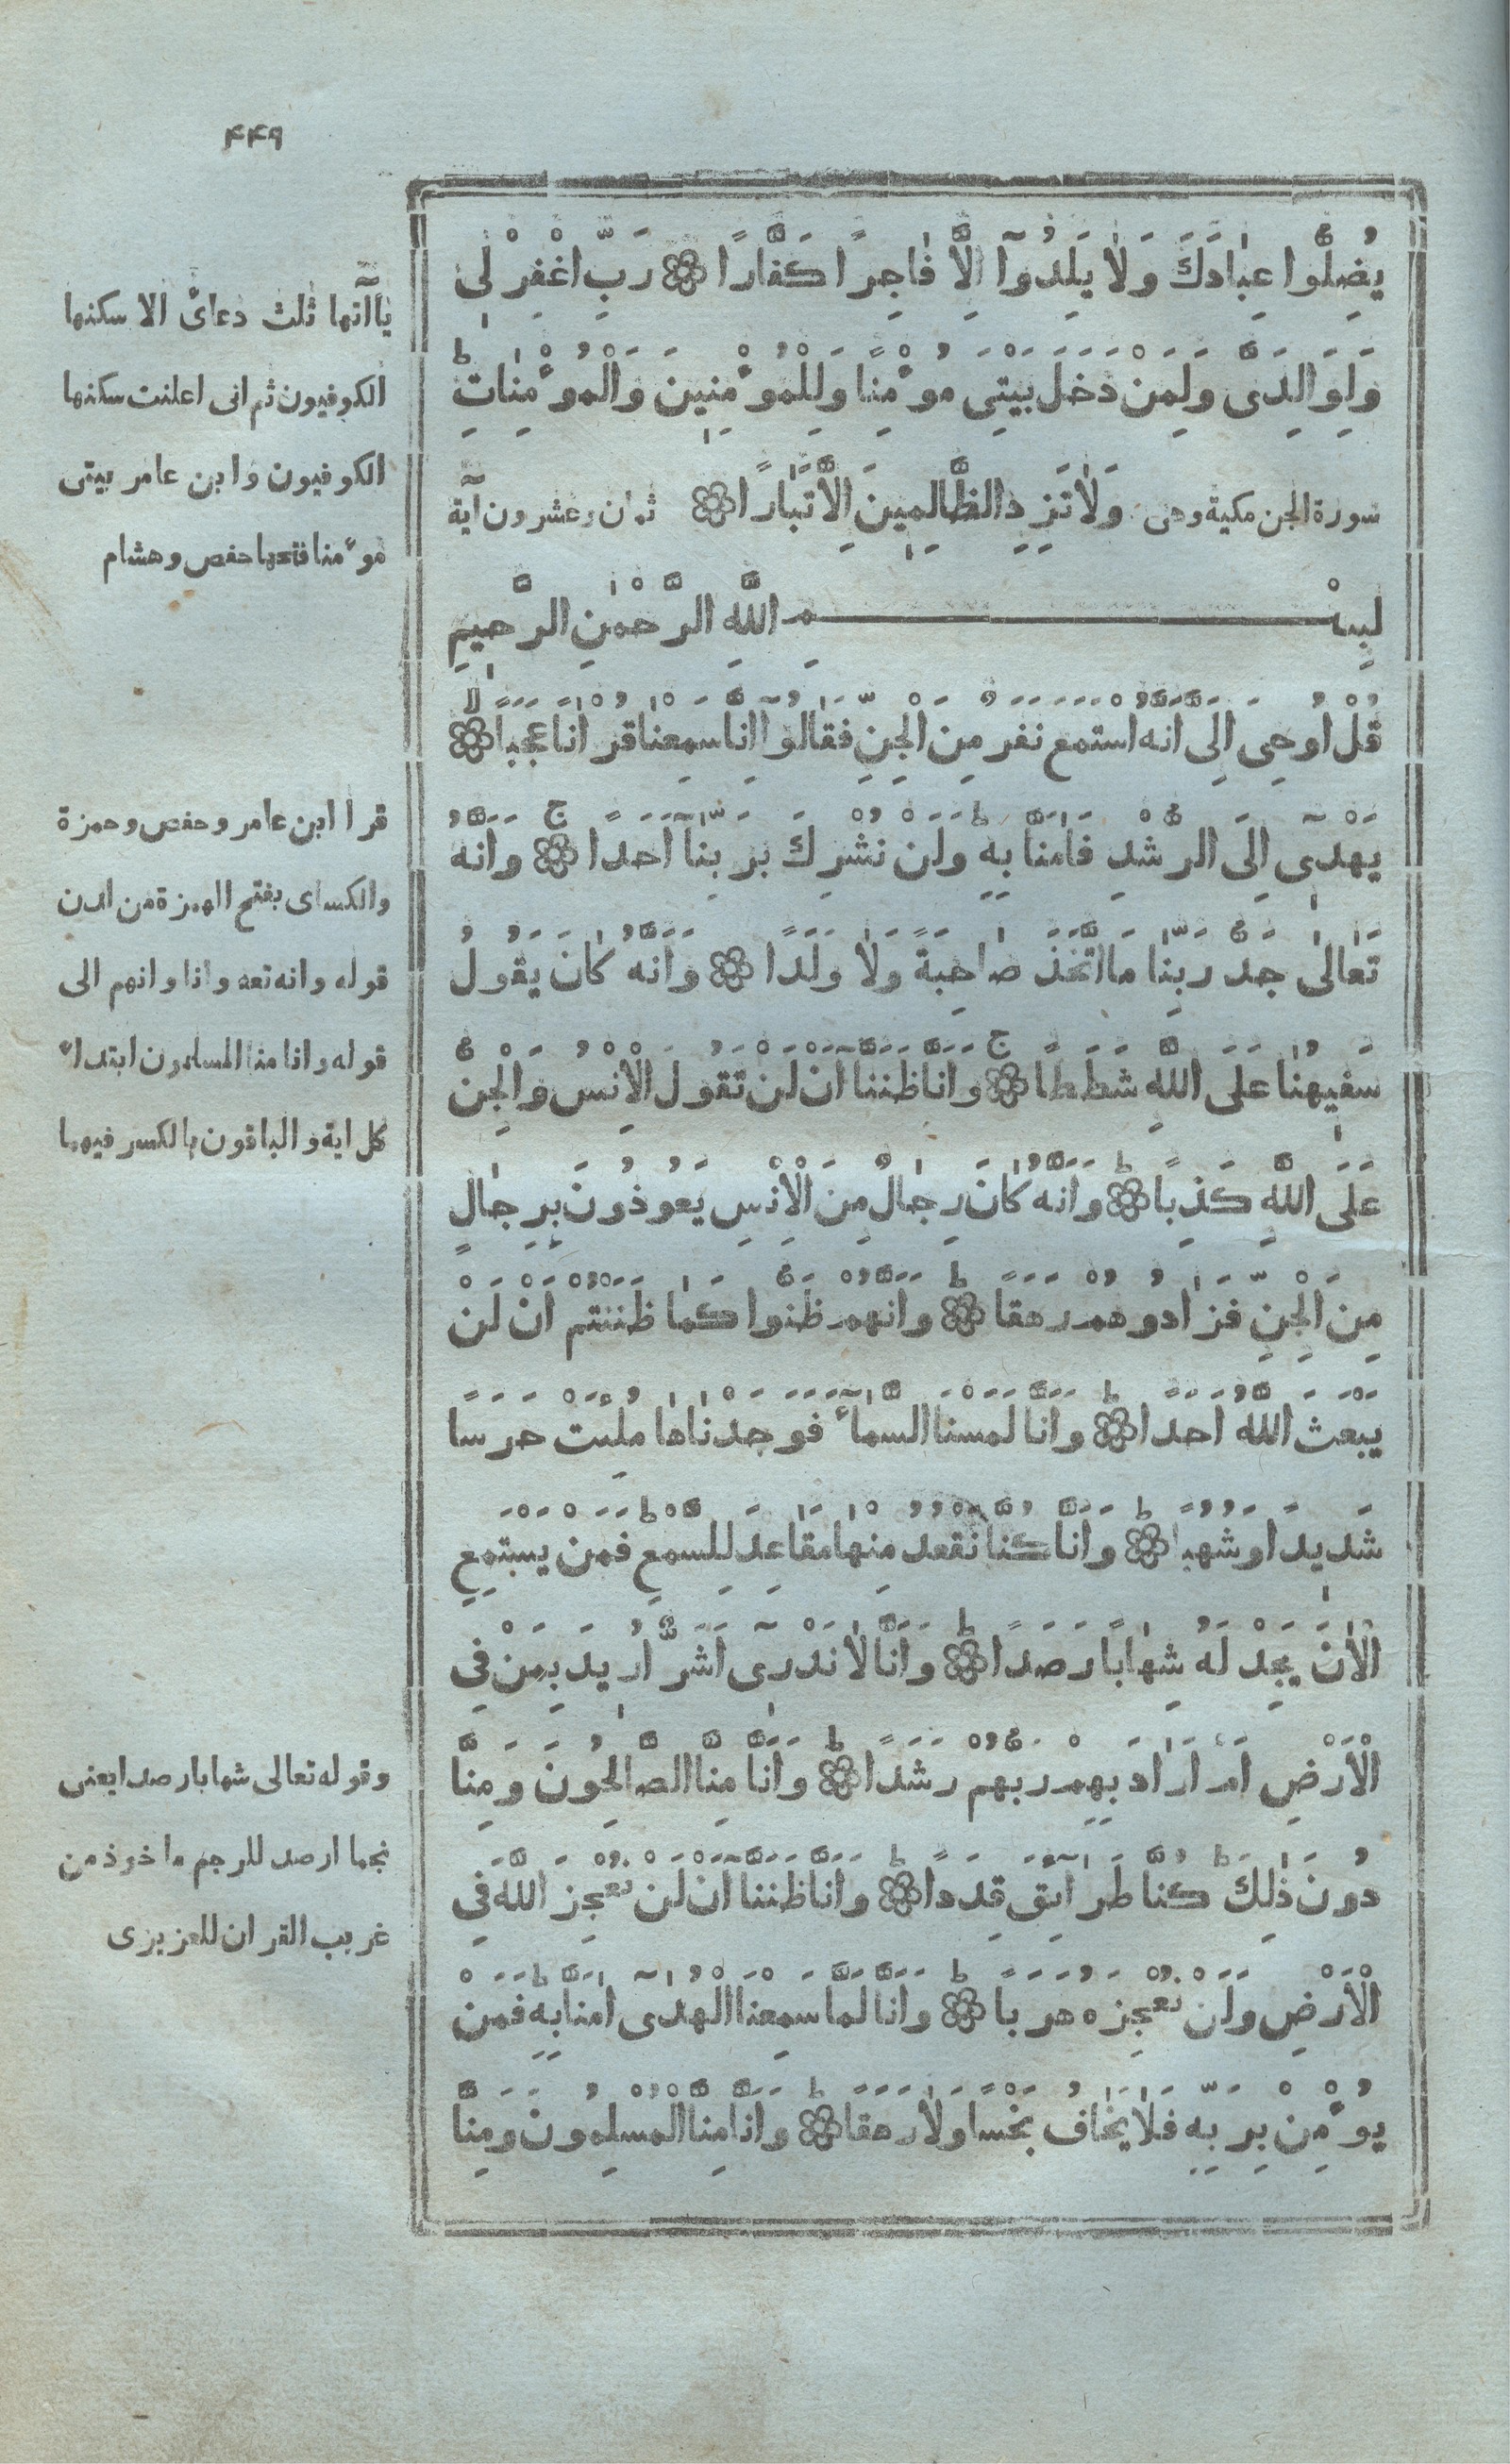 ۴۴۹
يُضِلُّوا عِبَادَكَ وَلَا يَلِدُوٓا اِلَّا فَاجِرًا كَفَّارًا ۞ رَبِّ اغْفِرْ لِى
وَلِوَالِدَىَّ وَلِمَنْ دَخَلَ بَيْتِىَ مُوْٴمِنًا وَلِلْمُوْٴمِنِينَ وَالْمُوْٴمِنَاتِ ط
سورة الجن مكية وهى وَلَا تَزِدِ الظَّالِمِينَ اِلَّا تَبَارًا ۞ ثمان وعشرون آية
بِسْمِ اللَّهِ الرَّحْمٰنِ الرَّحِيمِ
قُلْ اُوحِىَ اِلَىَّ اَنَّهُ اسْتَمَعَ نَفَرٌ مِنَ الْجِنِّ فَقَالُوٓا اِنَّا سَمِعْنَا قُرْاٰنًا عَجَبًا لا ۞
يَهْدِىٓ اِلَى الرُّشْدِ فَاٰمَنَّا بِهِ ط وَلَنْ نُشْرِكَ بِرَبِّنَآ اَحَدًا ج ۞ وَاَنَّهُ
تَعَالٰى جَدُّ رَبِّنَا مَا اتَّخَذَ صَاحِبَةً وَلَا وَلَدًا ۞ وَاَنَّهُ كَانَ يَقُولُ
سَفِيهُنَا عَلَى اللَّهِ شَطَطًا ج ۞ وَاَنَّا ظَنَنَّآ اَنْ لَنْ تَقُولَ الْاِنْسُ وَالْجِنُّ
عَلَى اللَّهِ كَذِبًا ط ۞ وَاَنَّهُ كَانَ رِجَالٌ مِنَ الْاِنْسِ يَعُوذُونَ بِرِجَالٍ
مِنَ الْجِنِّ فَزَادُوهُمْ رَهَقًا ط ۞ وَاَنَّهُمْ ظَنُّوا كَمَا ظَنَنْتُمْ اَنْ لَنْ
يَبْعَثَ اللَّهُ اَحَدًا ط ۞ وَاَنَّا لَمَسْنَا السَّمَآٴَ فَوَجَدْنَاهَا مُلِئَتْ حَرَسًا
شَدِيدًا وَشُهُبًا ط ۞ وَاَنَّا كُنَّا نَقْعُدُ مِنْهَا مَقَاعِدَ لِلسَّمْعِ ط فَمَنْ يَسْتَمِعِ
الْاٰنَ يَجِدْ لَهُ شِهَابًا رَصَدًا ط ۞ وَاَنَّا لَا نَدْرِىٓ اَشَرٌّ اُرِيدَ بِمَنْ فِى
الْاَرْضِ اَمْ اَرَادَ بِهِمْ رَبُّهُمْ رَشَدًا ط ۞ وَاَنَّا مِنَّا الصَّالِحُونَ وَمِنَّا
دُونَ ذٰلِكَ ط كُنَّا طَرَآئِقَ قِدَدًا ط ۞ وَاَنَّا ظَنَنَّآ اَنْ لَنْ نُعْجِزَ اللَّهَ فِى
الْاَرْضِ وَلَنْ نُعْجِزَهُ هَرَبًا ط ۞ وَاَنَّا لَمَّا سَمِعْنَا الْهُدٰىٓ اٰمَنَّا بِهِ ط فَمَنْ
يُوْٴمِنْ بِرَبِّهِ فَلَا يَخَافُ بَخْسًا وَلَا رَهَقًا ط ۞ وَاَنَّا مِنَّا الْمُسْلِمُونَ وَمِنَّا
ياآتها ثلث دعائ الا سكنها
الكوفيون ثم انى اعلنت سكنها
الكوفيون وابن عامر بيتى
موٴمنا فتحها حفص وهشام
قرا ابن عامر وحفص وحمزة
والكساى بفتح الهمزة من لدن
قوله وانه تعه وانا وانهم الى
قوله وانا منا المسلمون ابتداٴ
كل اية والباقون بالكسر فيهما
وقوله تعالى شهابا رصدا يعنى
نجما ارصد للرجم ماخوذ من
غريب القران للعزيزى